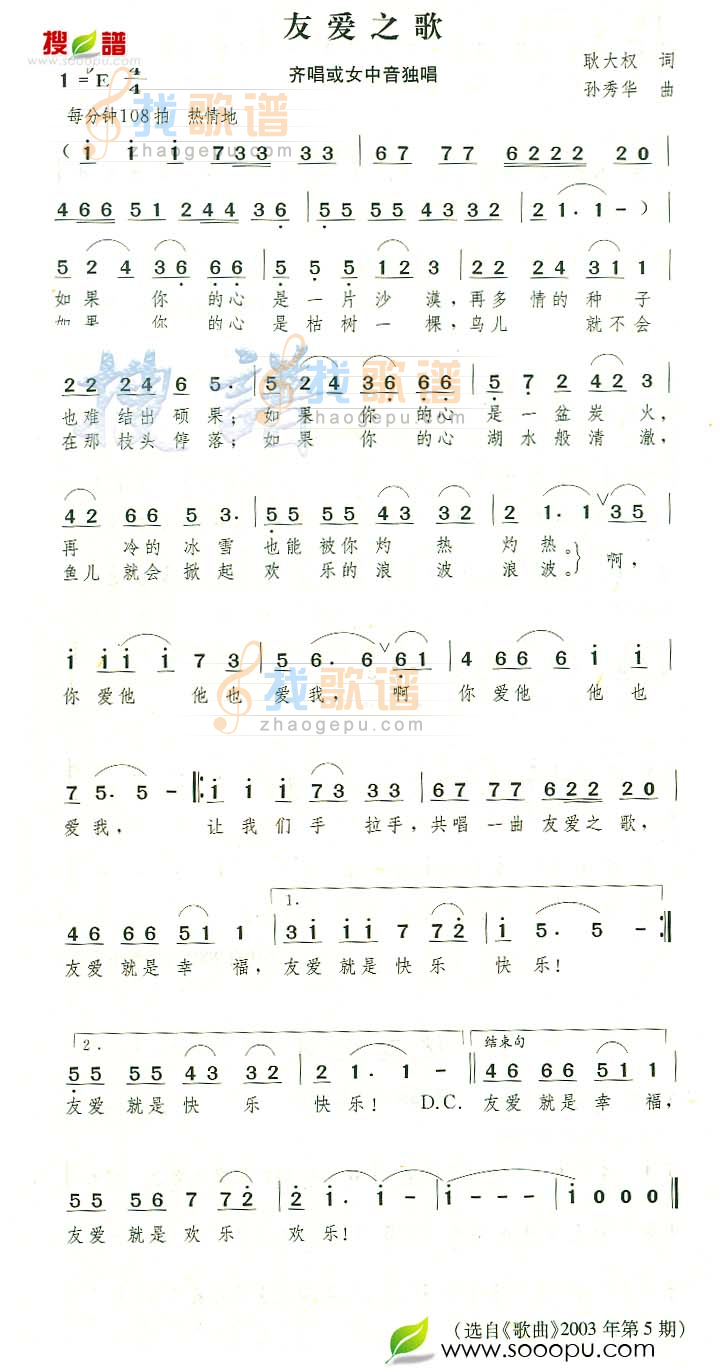 搜谱
www.sooopu.com
友爱之歌
齐唱或女中音独唱
耿大权 词
孙秀华 曲
1=♭E 4/4
每分钟108拍 热情地
找歌谱
zhaogepu.com
( 1 1 1 733 33 | 67 77 6222 20 |
466 51 244 36 | 55 55 4332 | 21. 1 - )
5 2 4 36 66 | 5 5 5 123 | 22 24 311 |
如果 你 的心 是一片沙 漠,再多 情的 种子
如果 你 的心 是枯树一 棵,鸟儿 就不会
22 24 6 5. | 5 24 36 66 | 5 7 2 423 |
也难结出硕果;如果 你 的心 是一盆炭火,
在那枝头停落;如果 你 的心 湖水般清澈,
搜谱
找歌谱
zhaogepu.com
42 66 5 3. | 55 55 43 32 | 2 1. 1 35 |
再 冷的冰雪 也能被你灼 热 灼热。 啊,
鱼儿就会掀起 欢乐的浪 波 浪波。
1 11 1 7 3 | 5 6. 6 61 | 4 66 6 1 1 |
你爱他 他也 爱我, 啊 你爱他 他也
找歌谱
zhaogepu.com
7 5. 5 - |: 1 1 1 73 33 | 67 77 622 20 |
爱我, 让我们手 拉手,共唱一曲友爱之歌,
1.
46 66 511 | 31 11 7 72 | 1 5. 5 - :|
友爱就是幸 福,友爱就是快乐 快乐!
2.
结束句
55 55 43 32 | 21. 1 - || 46 66 511 |
友爱就是快 乐 快乐! D.C. 友爱就是幸 福,
55 56 7 72 | 2 1. 1 - | 1 - - - | 1 0 0 0 ||
友爱就是欢乐 欢乐!
(选自《歌曲》2003年第5期)
www.sooopu.com